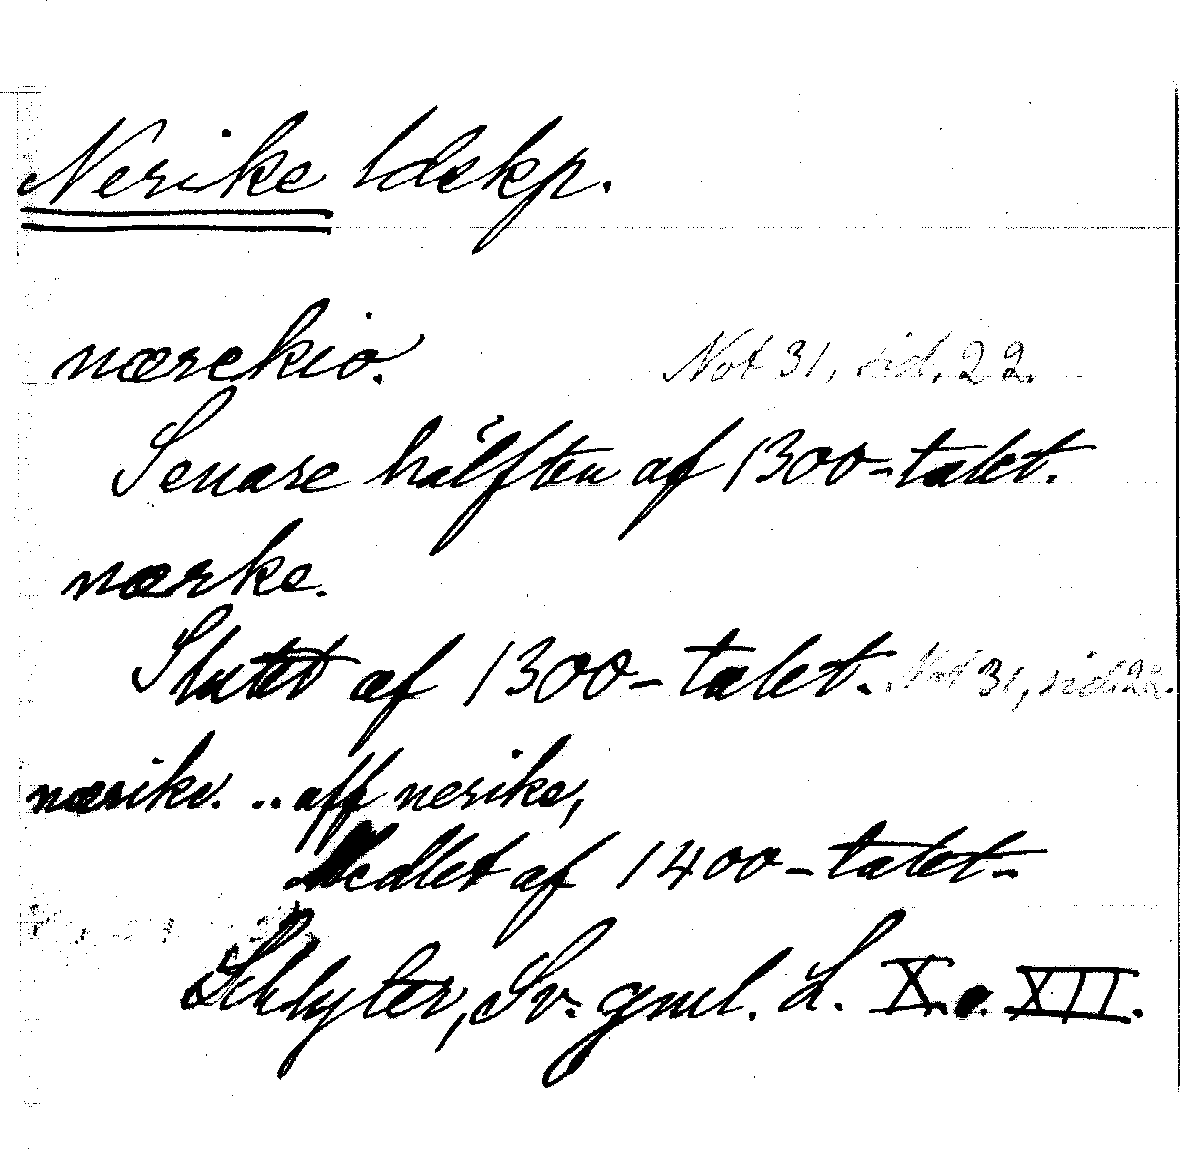 Nerike ldskp.
nærekio. Not 31, sid. 22.
Senare hälften af 1300-talet.
nærke.
Slutet af 1300-talet. Not 31, sid. 22.
næriki. .. aff nerike,
Medlet af 1400-talet.
Schlyter, Sv. gml. L. X. o. XII.